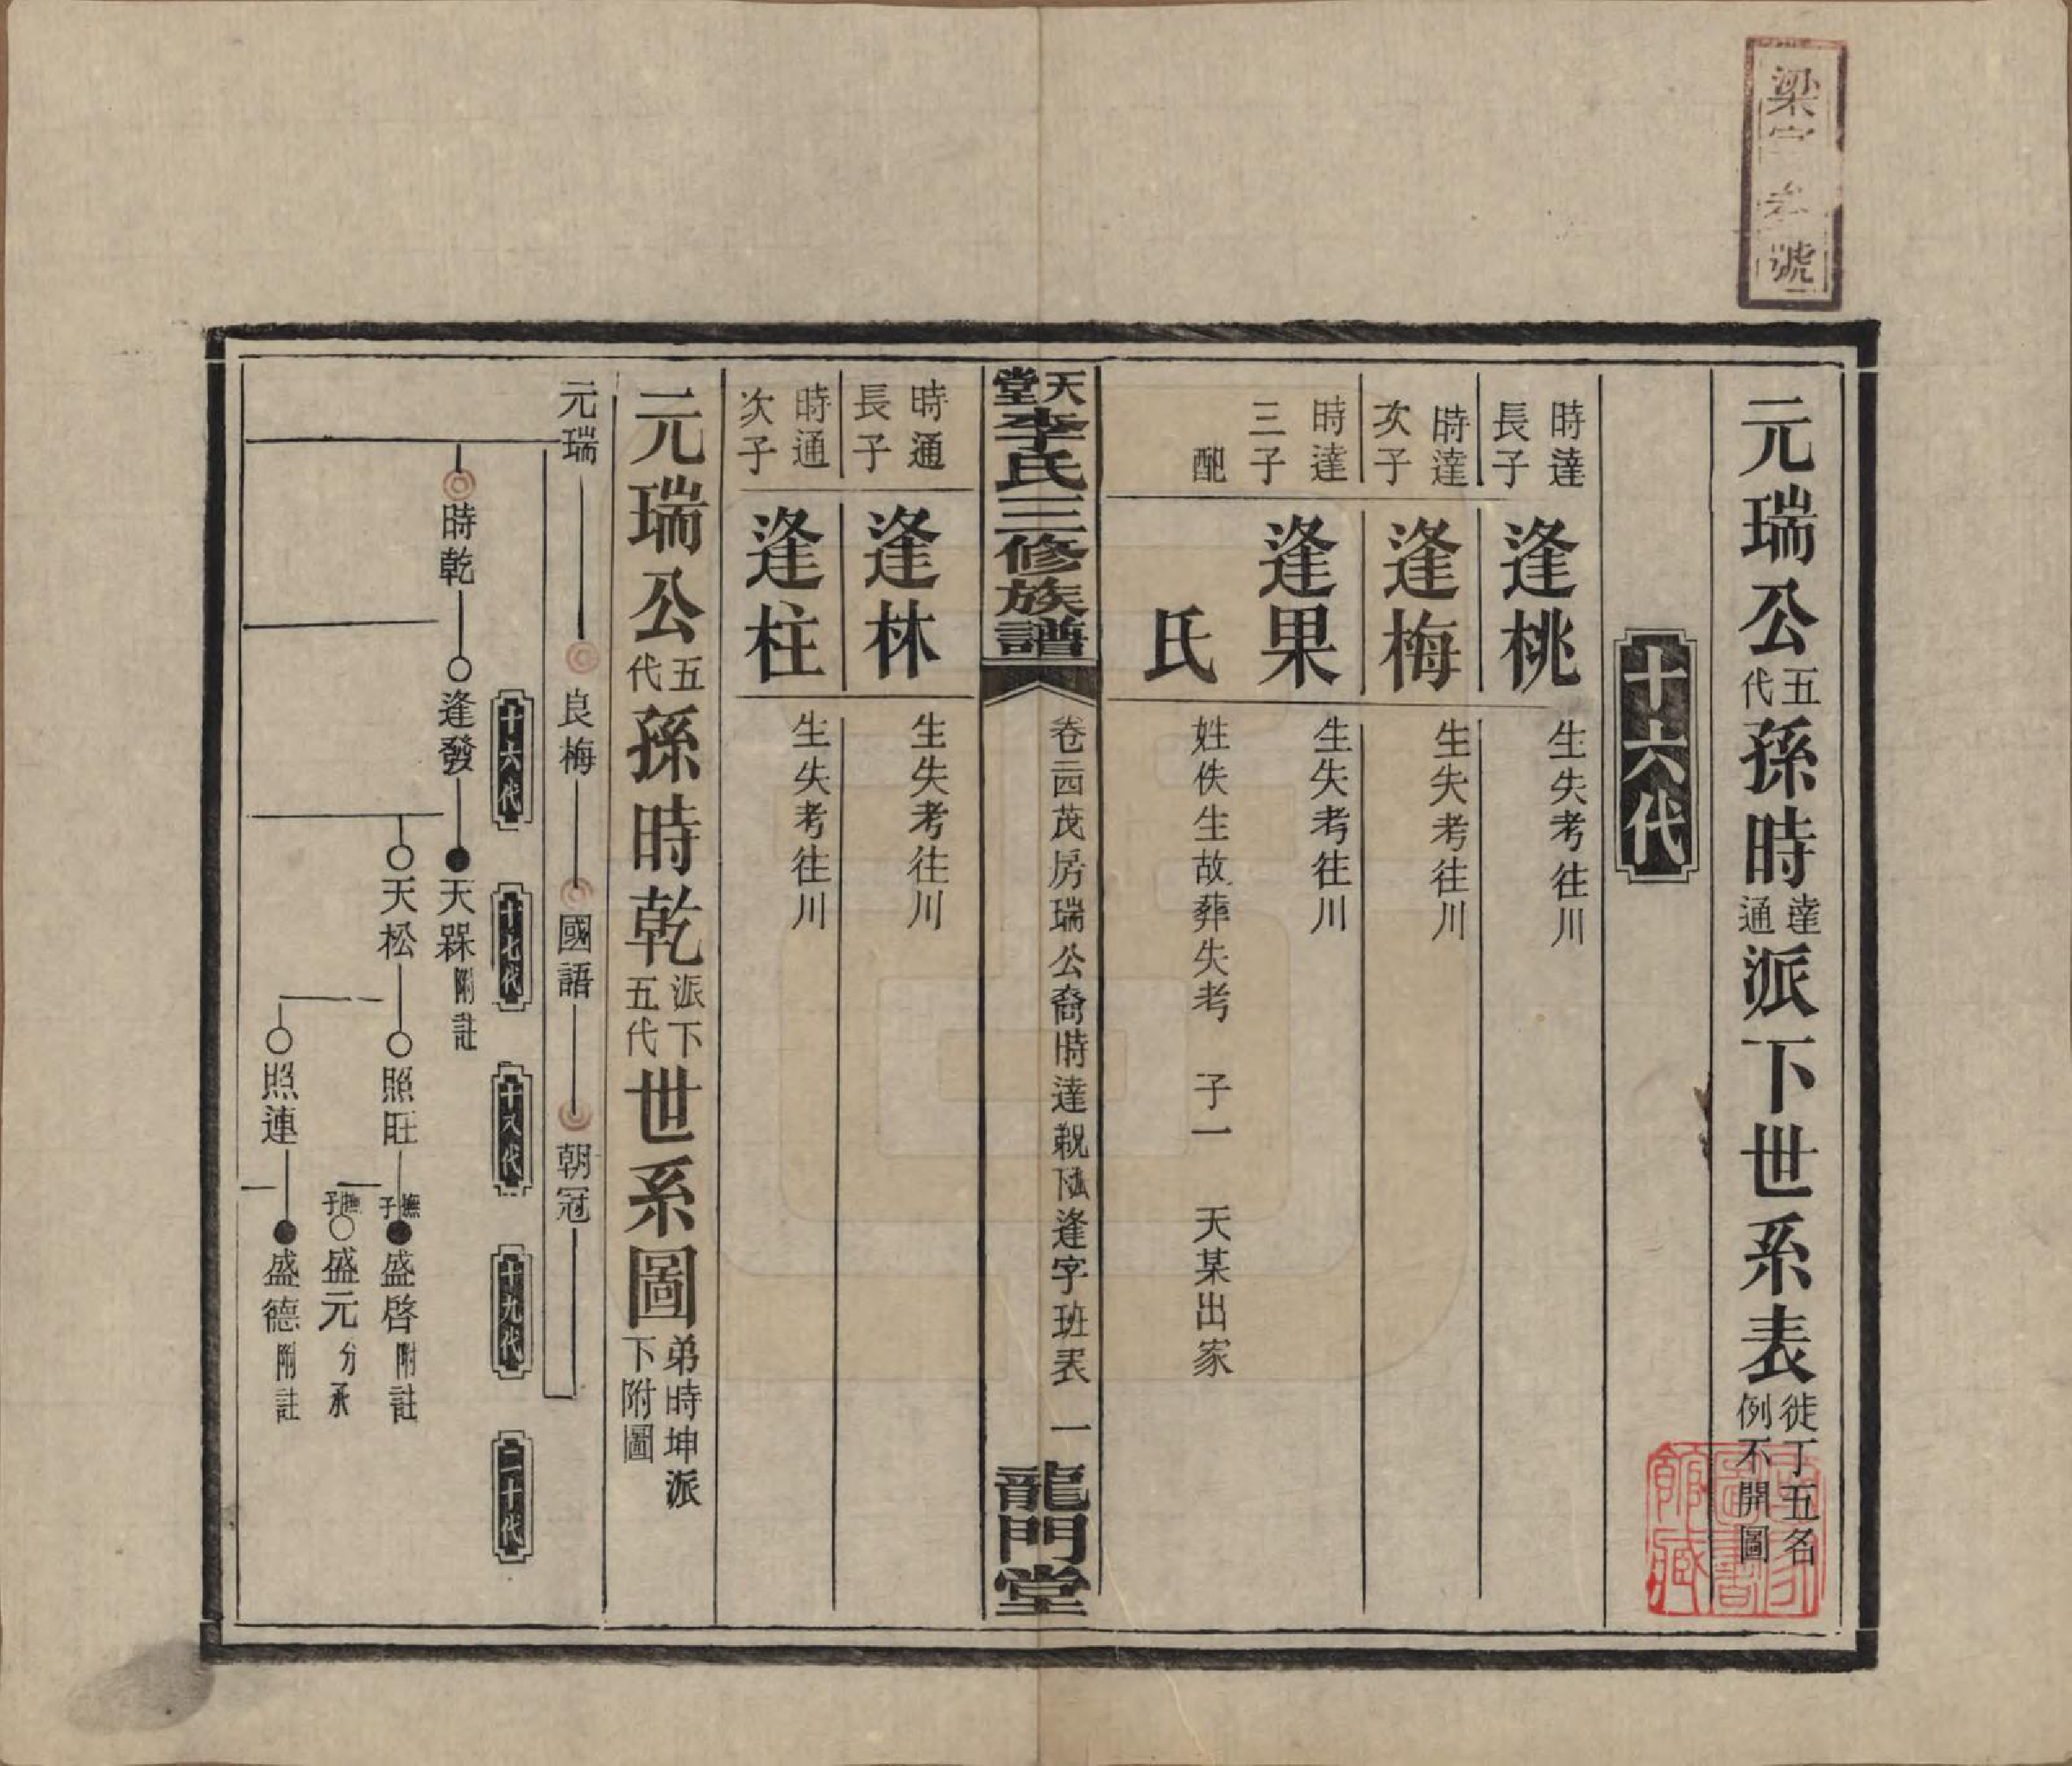 梁字 号
元瑞公五代孫時達通派下世系表徙丁五名例不開圖
十六代
時達長子
逢桃
生失考往川
時達次子
逢梅
生失考往川
時達三子
逢果
生失考往川
配
氏
姓佚生故葬失考 子一 天某出家
天堂李氏三修族譜
卷二四茂房瑞公裔時達 逢字班表 一
龍門堂
時通長子
逢林
生失考往川
時通次子
逢柱
生失考往川
元瑞公五代孫時乾派下五代世系圖弟時坤派下附圖
元瑞
良梅
國語
朝冠
十六代
十七代
十八代
十九代
二十代
時乾
逢發
天槑附註
天松
照旺
撫子
盛啓附註
撫子
盛元分承
照連
盛德附註